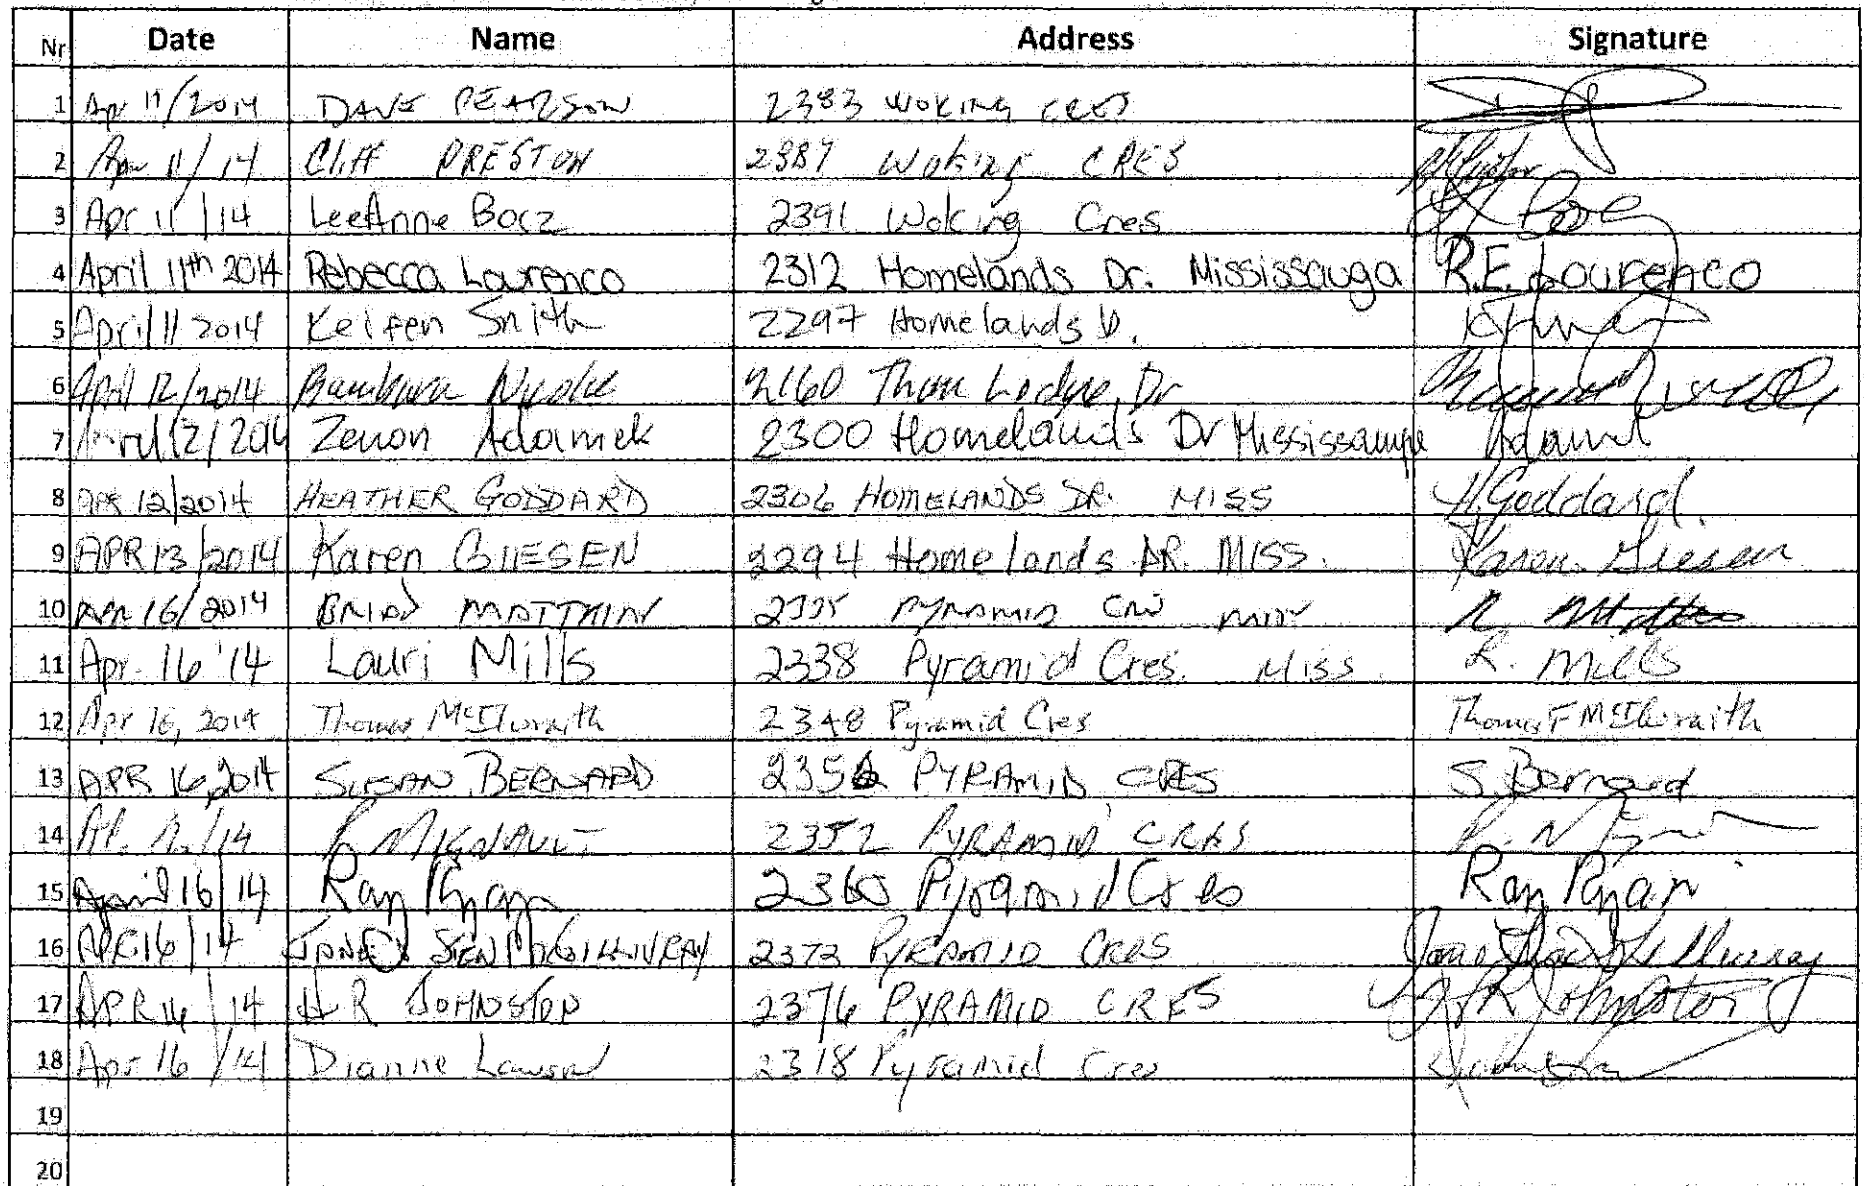 Nr Date Name Address Signature
1 Apr 11/2014 DAVE PEARSON 2383 WOKING CRES
2 Apr 11/14 Cliff PRESTON 2387 Woking CRES
3 Apr 11/14 LeeAnne Bocz 2391 Woking Cres
4 April 11th 2014 Rebecca Lourenco 2312 Homelands Dr. Mississauga R.E. Lourenco
5 April 11 2014 Smith 2297 Homelands D.
6 April 12/2014 2160 Dr
7 April 12/2014 Zenon Adamek 2300 Homelands Dr Mississauga
8 APR 12/2014 HEATHER GODDARD 2306 HOMELANDS DR. MISS H. Goddard.
9 APR 13/2014 Karen GIESEN 2294 Homelands DR. MISS. Karen Giesen
10 Apr 16/2014 PYRAMID
11 Apr. 16 '14 Lauri Mills 2338 Pyramid Cres. Miss L. Mills
12 Apr 16, 2014 Thomas McIlwraith 2348 Pyramid Cres Thomas F McIlwraith
13 APR 16, 2014 SUSAN BERNARD PYRAMID CRES S. Bernard
14 MIGNAULT 2352 PYRAMID CRES
15 April 16/14 Ray Ryan Pyramid Cres Ray Ryan
16 APR 16/14 2372 PYRAMID CRES
17 APR 16/14 H R JOHNSTON 2376 PYRAMID CRES HR Johnston
18 Apr 16/14 Dianne Lawson 2318 Pyramid Cres
19
20